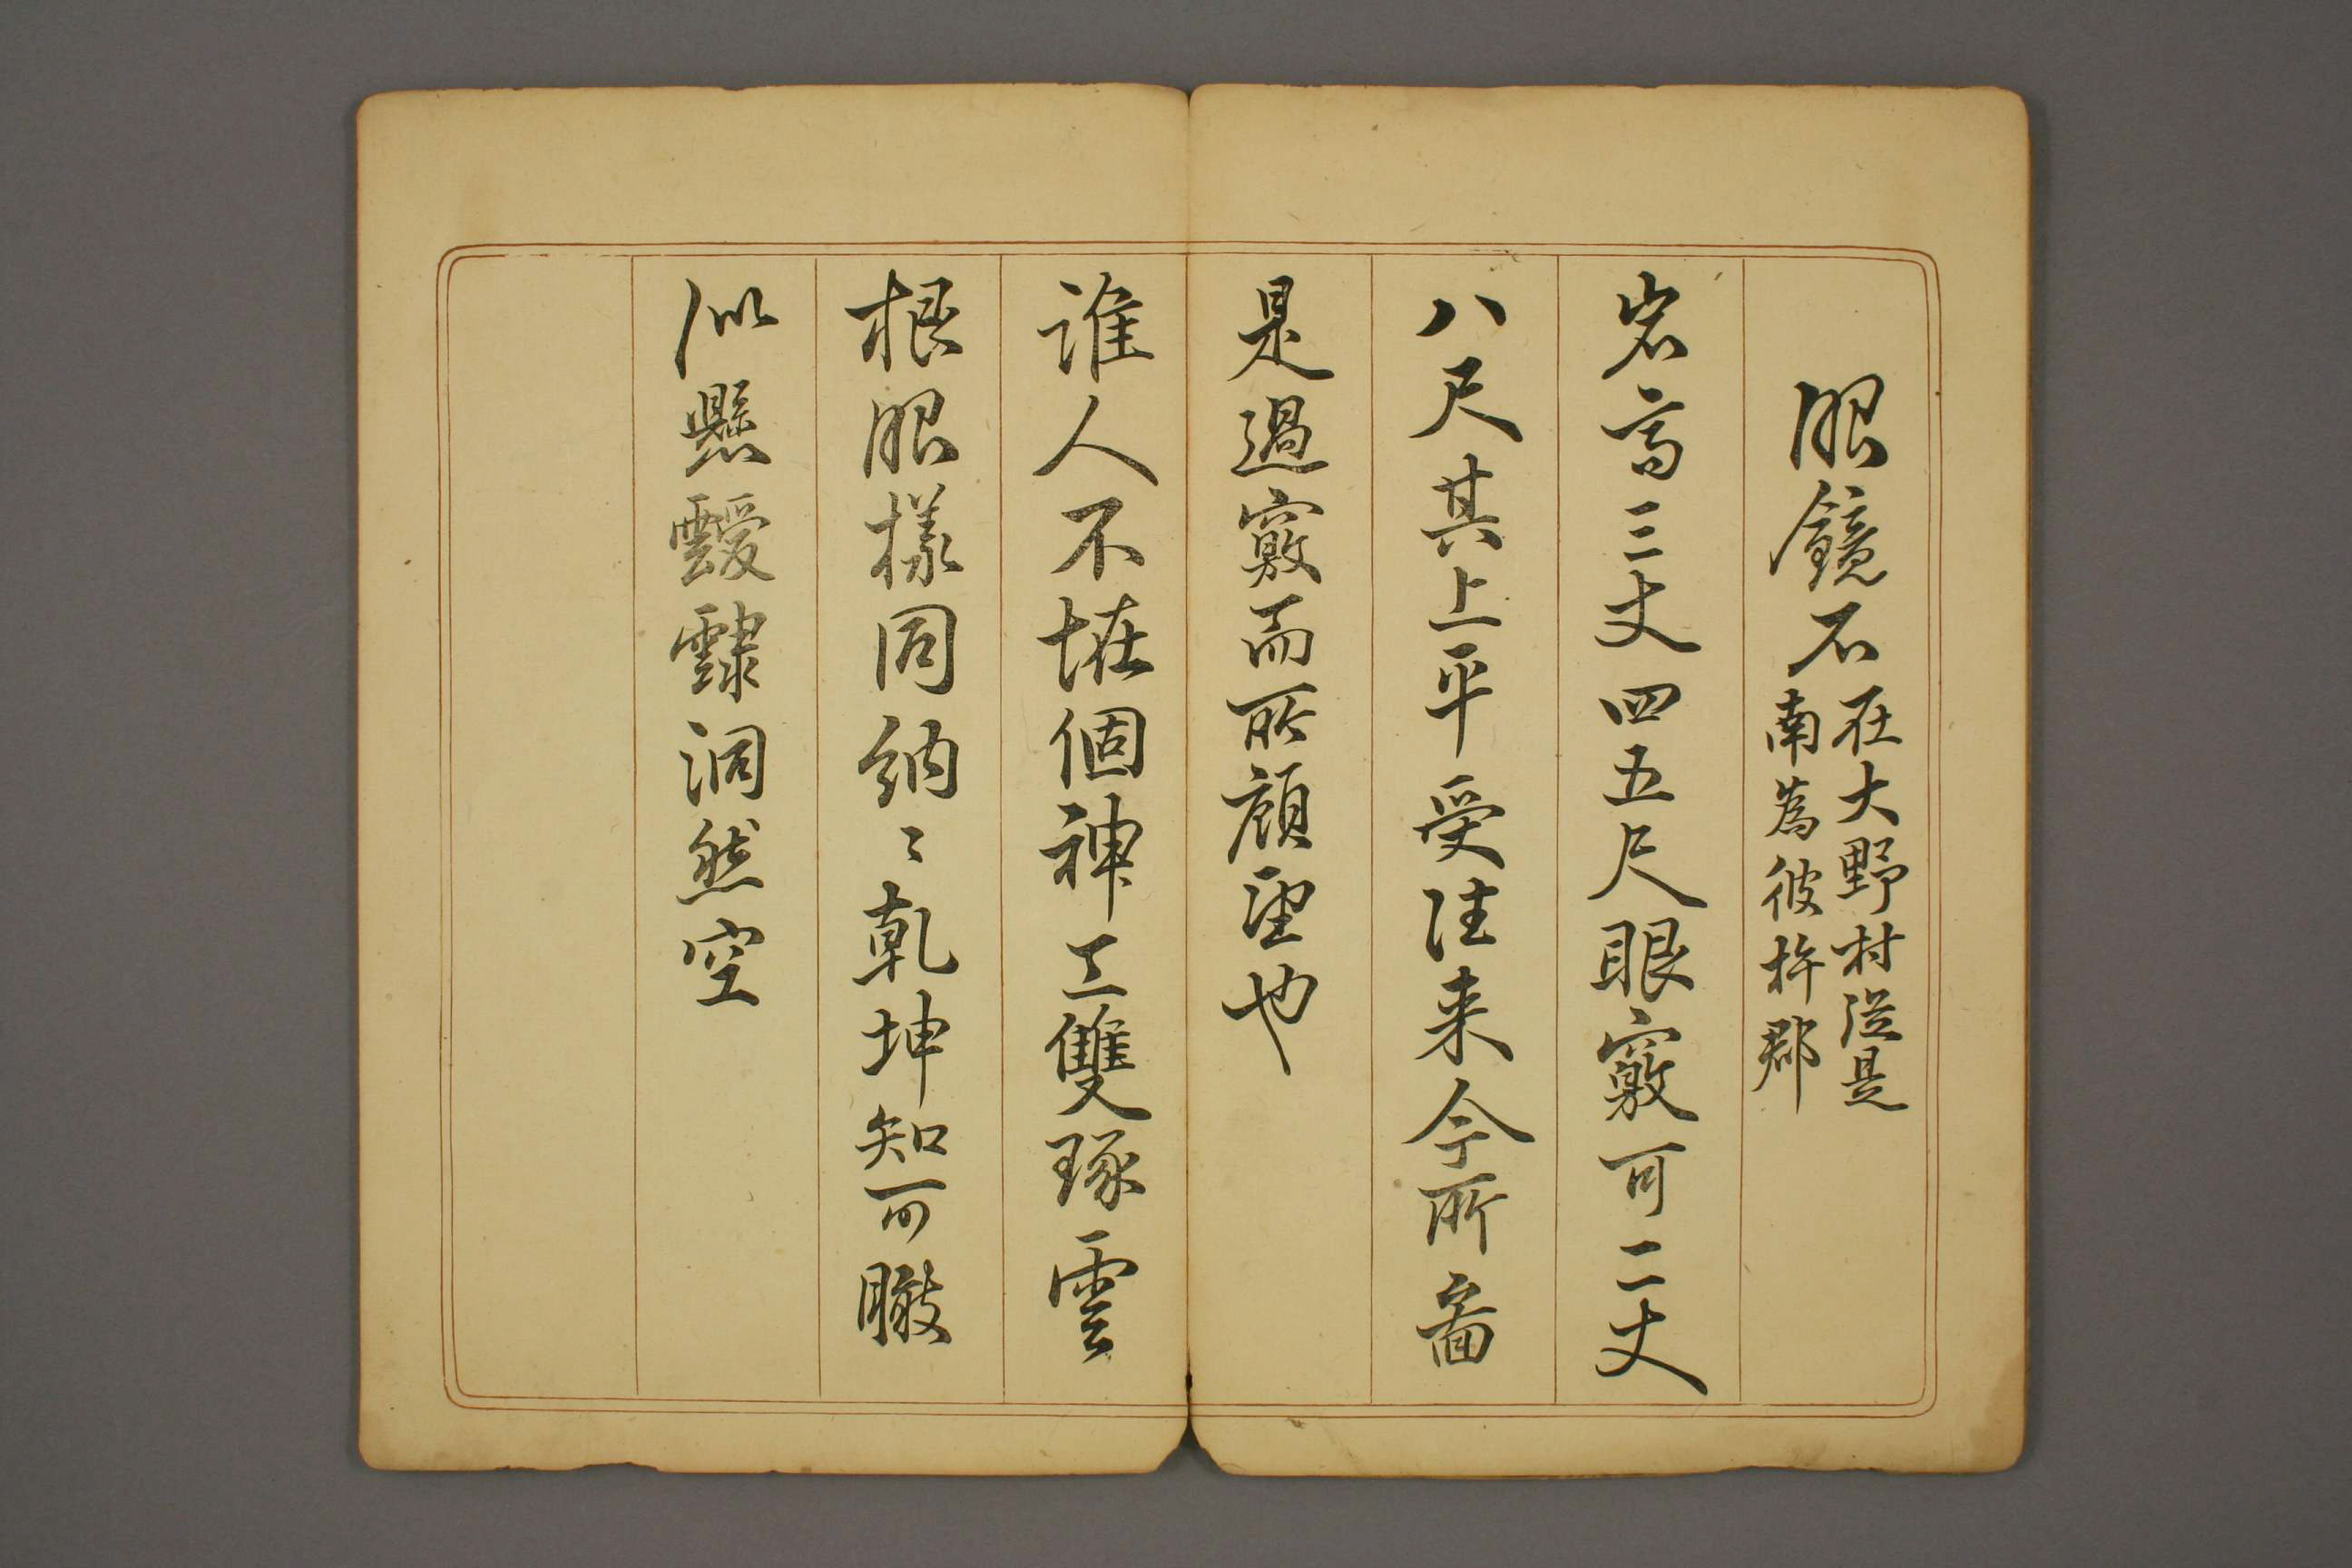 眼鏡石
在大野村従是
南為彼杵郡
岩高三丈四五尺眼竅可二丈
八尺其上平受往来今所啚
是過竅而所顧望也
誰人不恠個神工雙琢雲
根眼様同納〻乾坤知可瞰
似懸靉靆洞然空